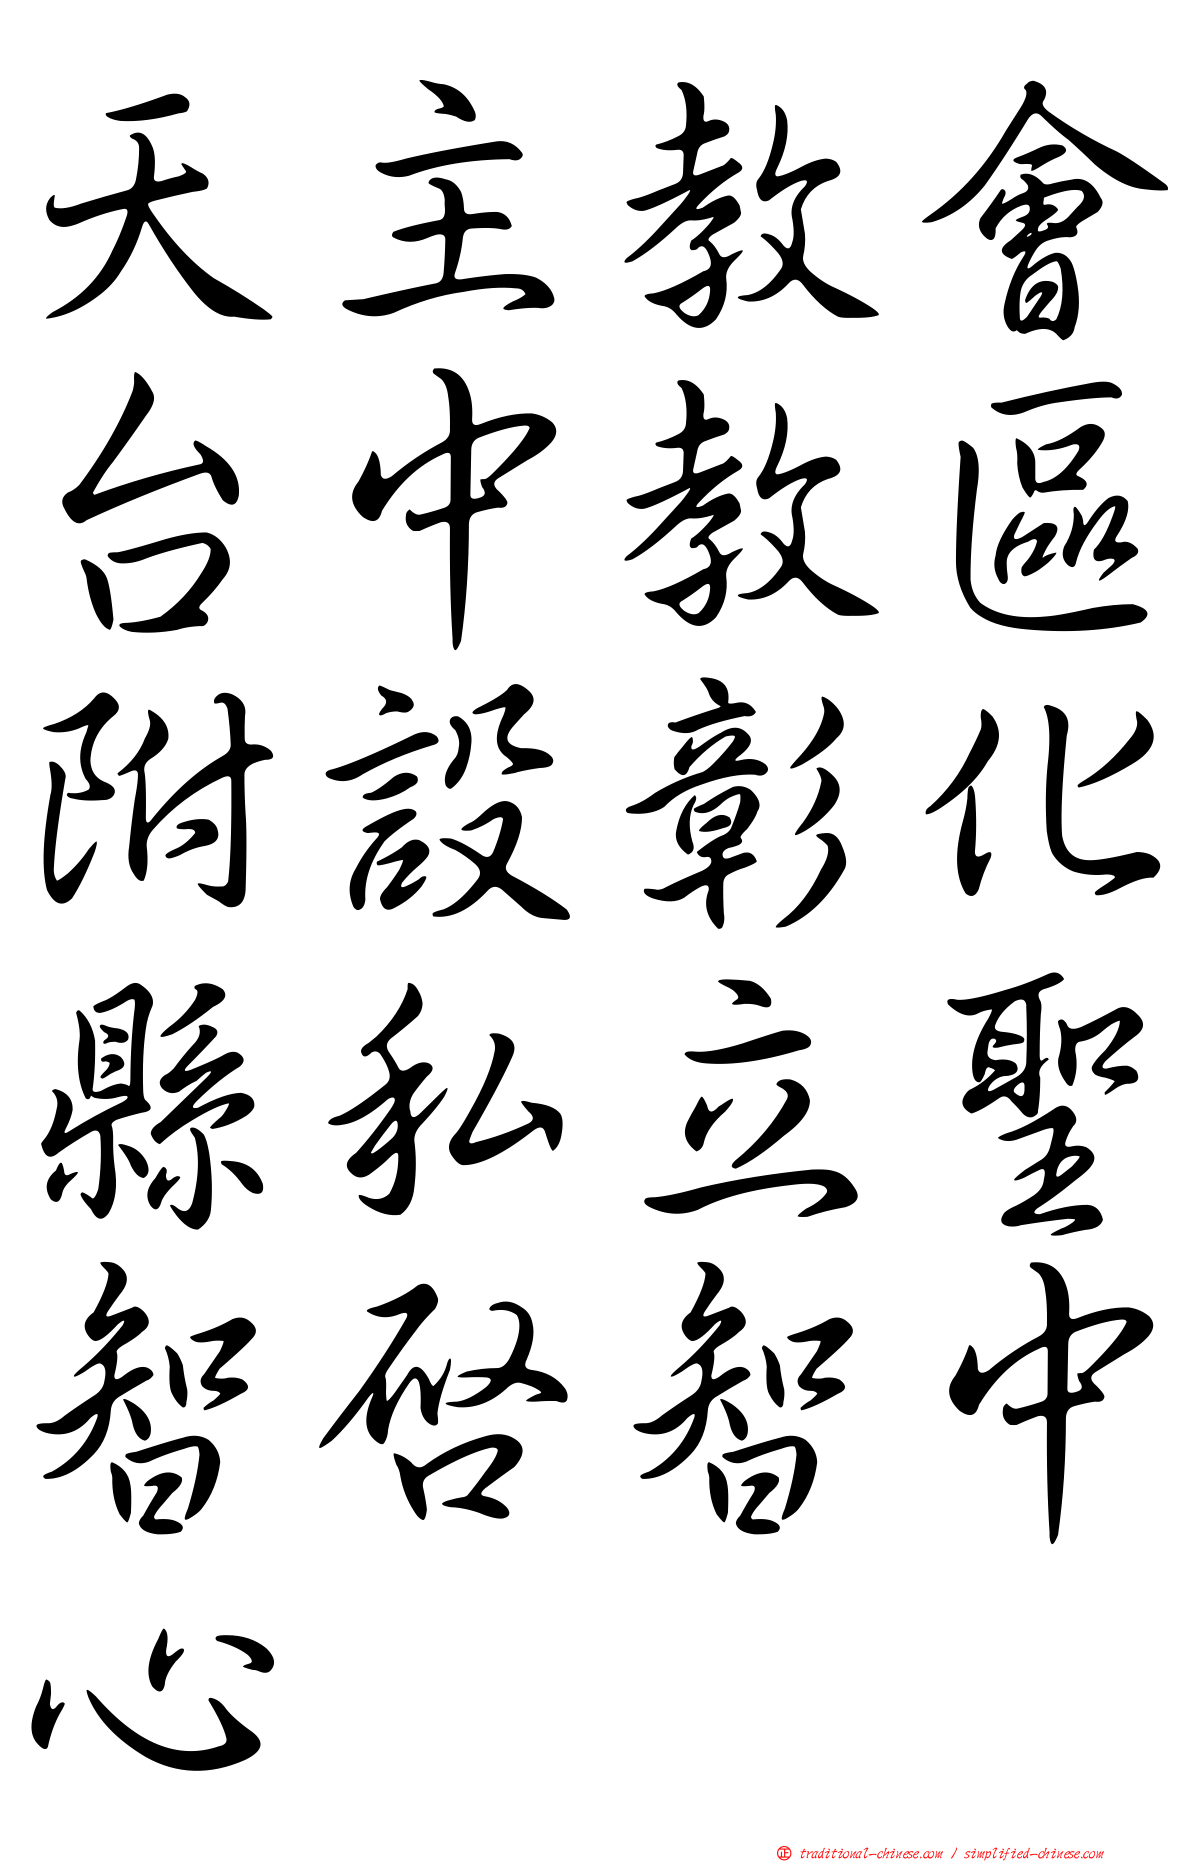 天主教會
台中教區
附設彰化
縣私立聖
智啓智中
心
正 traditional-chinese.com / simplified-chinese.com